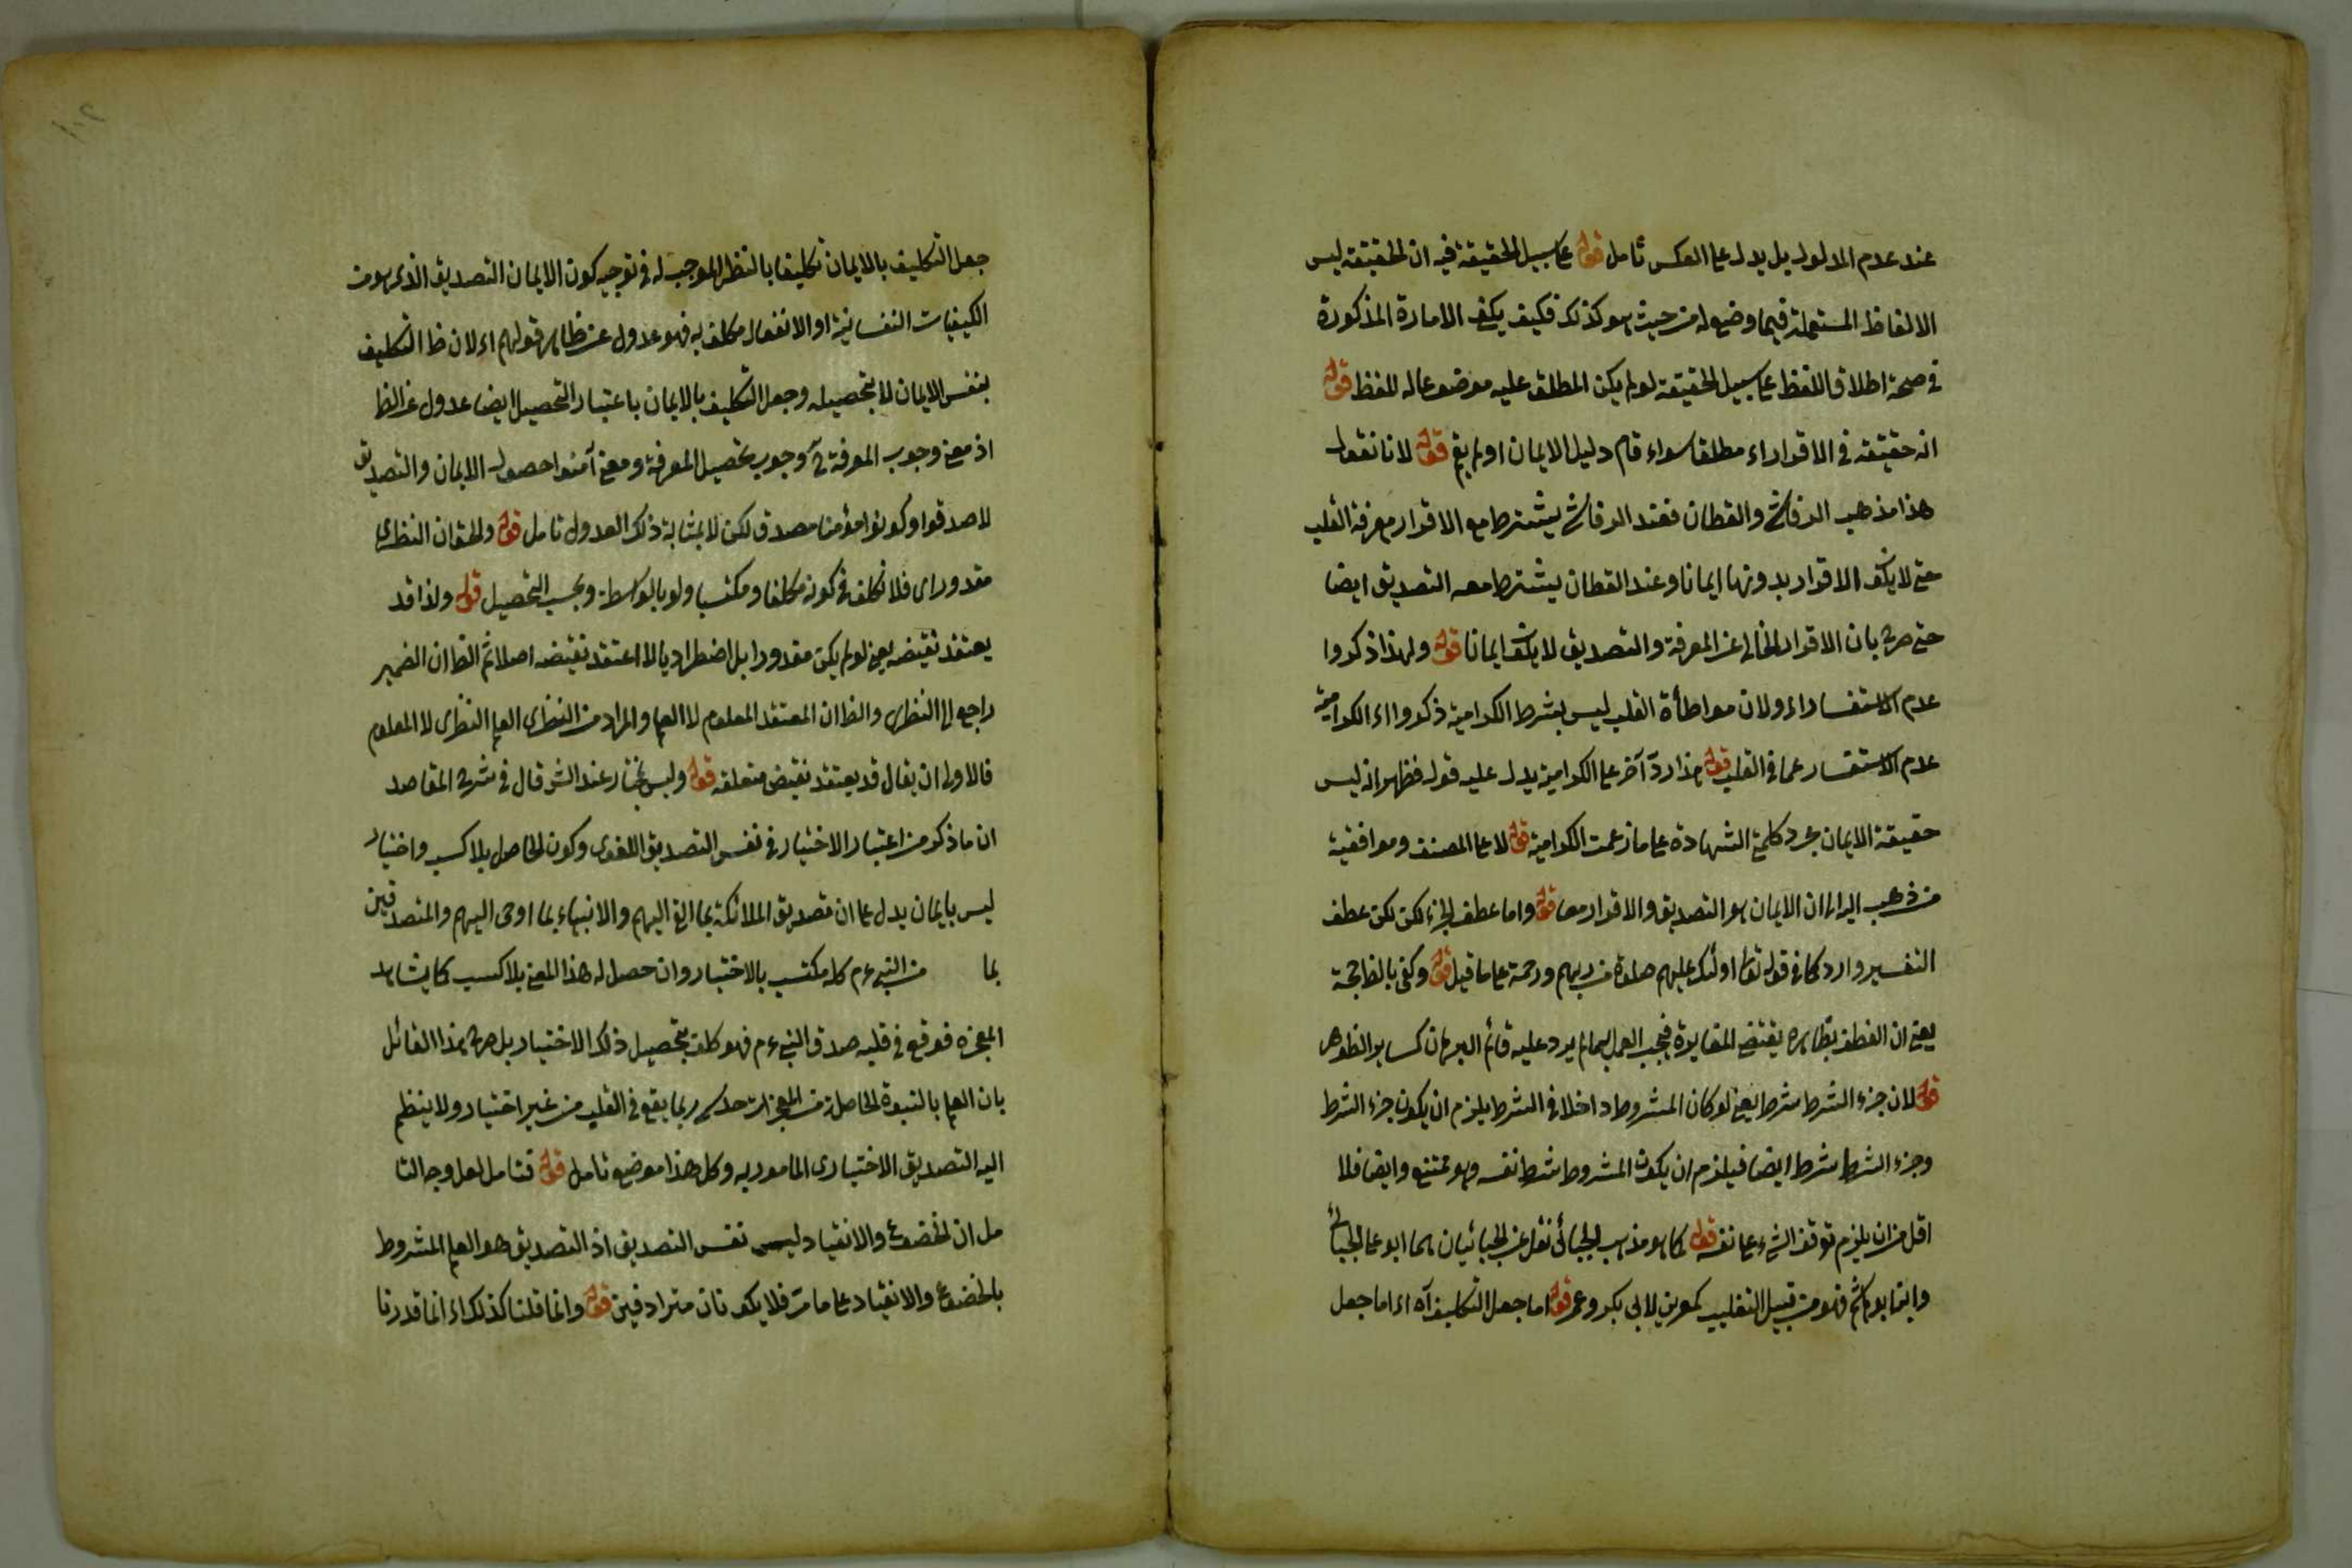 عند عدم المدلول بل يدل على العكس تأمل قوله على سبيل الحقيقة فيه ان الحقيقة ليس
الالفاظ المستعملة فيما وضع له من حيث هو كذلك فكيف يكفى الامارة المذكورة
فى صحة اطلاق اللفظ على سبيل الحقيقة لو لم يكن المطلق عليه موضوعا له للفظ قوله
انه حقيقة فى الاقرار اء مطلقا سواء قام دليل الايمان او لم يقم قوله لانا نقول
هذا مذهب الرقاشى والقطان فعند الرقاشى يشترط مع الاقرار معرفة القلب
حتى لا يكون الاقرار بدونها ايمانا وعند القطان يشترط معه التصديق ايضا
حتى صرح بان الاقرار الخالى عن المعرفة والتصديق لا يكون ايمانا قوله ولهذا ذكروا
عدم الاستفسار اء ولان مواطأة القلب ليس بشرط الكرامية ذكروا اء الكرامية
عدم الاستفسار عما فى القلب قوله هذا رد آخر على الكرامية يدل عليه قوله فظهر انه ليس
حقيقة الايمان مجرد كلمة الشهادة على ما زعمت الكرامية قوله لا على المصنف وموافقيه
من ذهب اليه اى ان الايمان هو التصديق والاقرار معا قوله واما عطف الجزء لكن لكن عطف
التفسير وارد كما فى قوله تعا اولئك عليهم صلوة من ربهم ورحمة على ما قيل قوله وكفى بالظاهر حجة
يعنى ان العطف بظاهره يقتضى المغايرة فيجب العمل بها ما لم يرد عليه قائم البرهان كساير الظواهر
قوله لان جزء الشرط شرط يعنى لو كان المشروط داخلا فى الشرط يلزم ان يكون جزء الشرط
وجزء الشرط شرط ايضا فيلزم ان يكون المشروط شرط نفسه وهو ممتنع وايضا فلا
اقل من ان يلزم توقف الشىء على نفسه قوله كما هو مذهب الجبائى نقل عن الجبائيان هما ابو على الجبائى
وابنه ابو هاشم فهو من قبيل التغليب كعمرين لابى بكر وعمر قوله اما جعل التكليف آه اء اما جعل
جعل التكليف بالايمان تكليفا بالنظر الموجب له فى توجيه كون الايمان التصديق الذى هو من
الكيفيات النفسانية او الانفعال مكلف به فهو عدول عن ظاهر قولهم اء لان ظ التكليف
بنفس الايمان لا بتحصيله وجعل التكليف بالايمان باعتبار التحصيل ايضا عدول عن الظ
اذ معنى وجوب المعرفة ح وجوب تحصيل المعرفة ومعنى آمنوا حصول الايمان والتصديق
لا صدقوا وكونوا مؤمنا مصدق لكن لا بمثابة ذلك العدول تأمل قوله والحق ان النظرى
مقدور اى فلا تكلف فى كونه مكلفا ومكتسبا ولو بالواسطة وبحسب التحصيل قوله ولذا قد
يعتقد نقيضه يعنى لو لم يكن مقدورا بل اضطراريا لا اعتقد نقيضه اصلا ثم الظ ان الضمير
راجع الى النظرى والظ ان المعتقد المعلوم لا العلم والمراد من النظرى العلم النظرى لا المعلوم
فالاولى ان يقال قد يعتقد نقيض متعلقه قوله وليس بمختار عند الش قال فى شرح المقاصد
ان ما ذكر من اعتبار الاختيار فى نفس التصديق اللغوى وكون الحاصل بلا كسب واختيار
ليس بايمان يدل على ان تصديق الملائكة بما القى اليهم والانبياء بما اوحى اليهم والمتصدقين
بما من النبى ءم كله مكتسب بالاختيار وان حصل له هذا المعنى بلا كسب كما يشاهد
المعجزه فوقع فى قلبه صدق النبى ءم فهو كلف بتحصيل ذلك الاختيار بل صرح هذا القائل
بان العلم بالنبوة الحاصل من المعجزات حدسى ربما يقع فى القلب من غير اختيار ولا ينظم
اليه التصديق الاختيارى المامور به وكل هذا موضع تأمل قوله فتأمل لعل وجه التا
مل ان الخضوع والانقياد ليس نفس التصديق اذ التصديق هو العلم المشروط
بالخضوع والانقياد على ما مر فلا يكونان مترادفين قوله وانما قلنا كذلك اء انما قدرنا